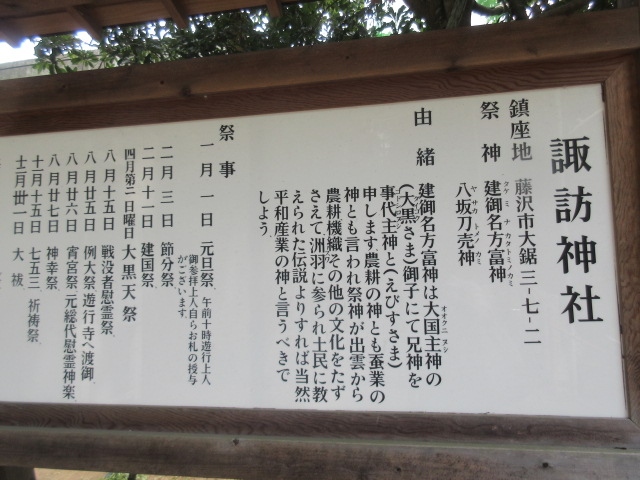 諏訪神社
鎮座地 藤沢市大鋸三-七-二
祭神 建御名方富神
タケミナカタトミノカミ
八坂刀売神
ヤサカトメノカミ
由緒 建御名方富神は大国主神の
オオクニヌシ
(大黒さま)御子にて兄神を
事代主神と(えびすさま)
申します農耕の神とも蚕業の
神とも言われ祭神が出雲から
農耕機織その他の文化をたず
さえて洲羽に参られ土民に教
えられた伝説よりすれば当然
平和産業の神と言うべきで
しょう。
祭事
一月一日 元旦祭、午前十時遊行上人
御参拝上人自らお札の授与
がございます。
二月三日 節分祭
二月十一日 建国祭、
四月第二日曜日 大黒天祭
八月十五日 戦没者慰霊祭、
八月廿五日 例大祭遊行寺へ渡御、
八月廿六日 宵宮祭、元総代慰霊神楽、
八月廿七日 神幸祭、
十一月十五日 七五三祈祷祭、
十二月卅一日 大祓